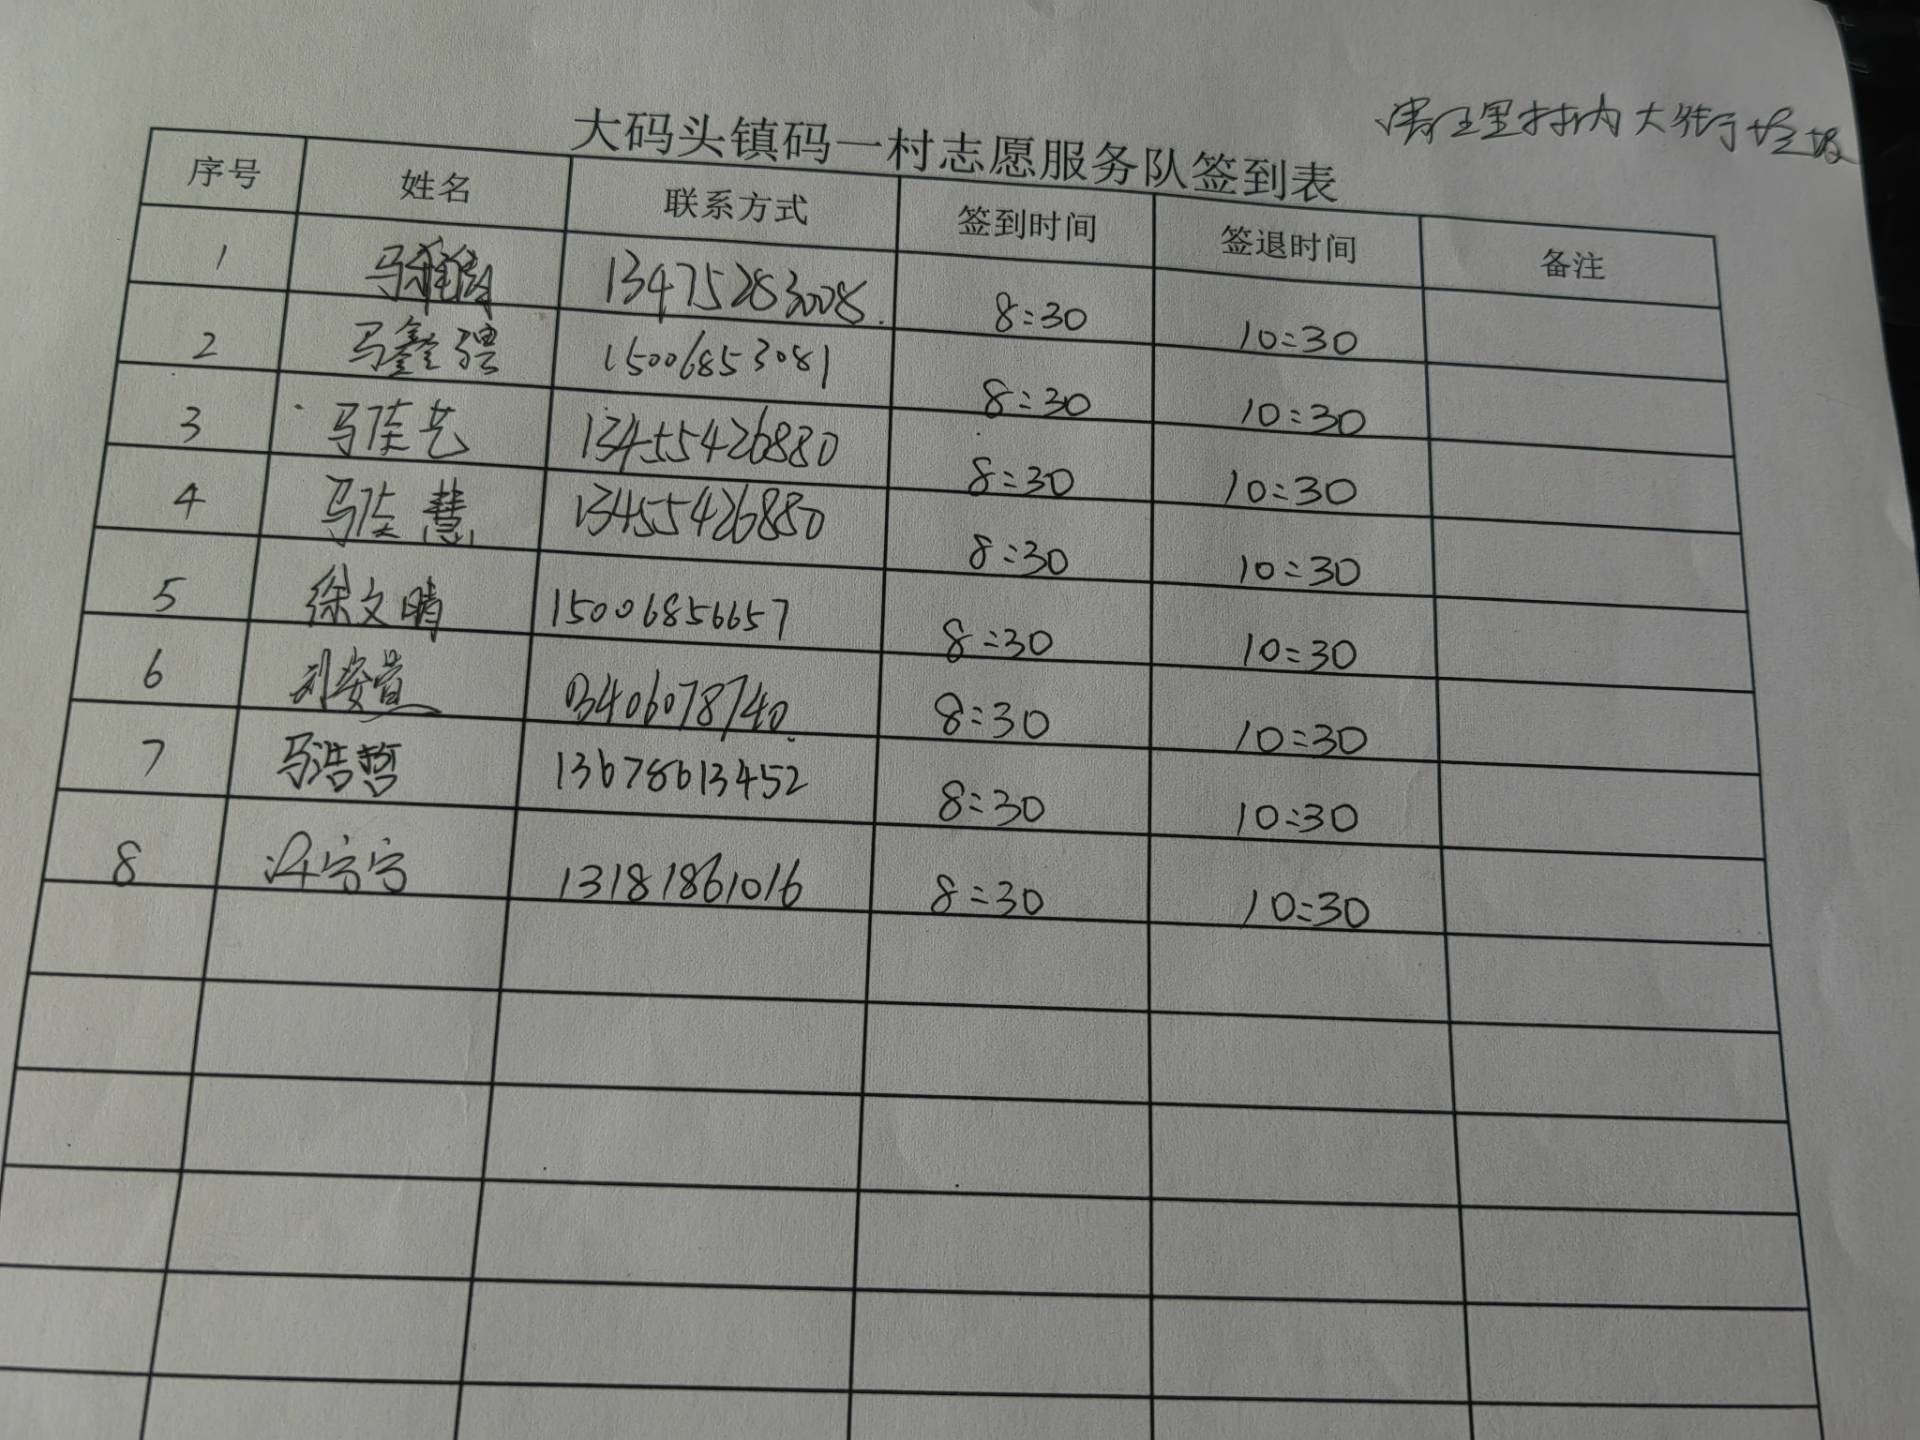 清理村内大街垃圾
大码头镇码一村志愿服务队签到表
序号 姓名 联系方式 签到时间 签退时间 备注
1 马 13475283008. 8:30 10:30
2 马鑫骋 15006853081 8:30 10:30
3 马佳艺 13455426880 8:30 10:30
4 马佳慧 13455426880 8:30 10:30
5 徐文晴 15006856657 8:30 10:30
6 刘安萱 03406078740. 8:30 10:30
7 马浩哲 13678613452 8:30 10:30
8 13181861016 8:30 10:30